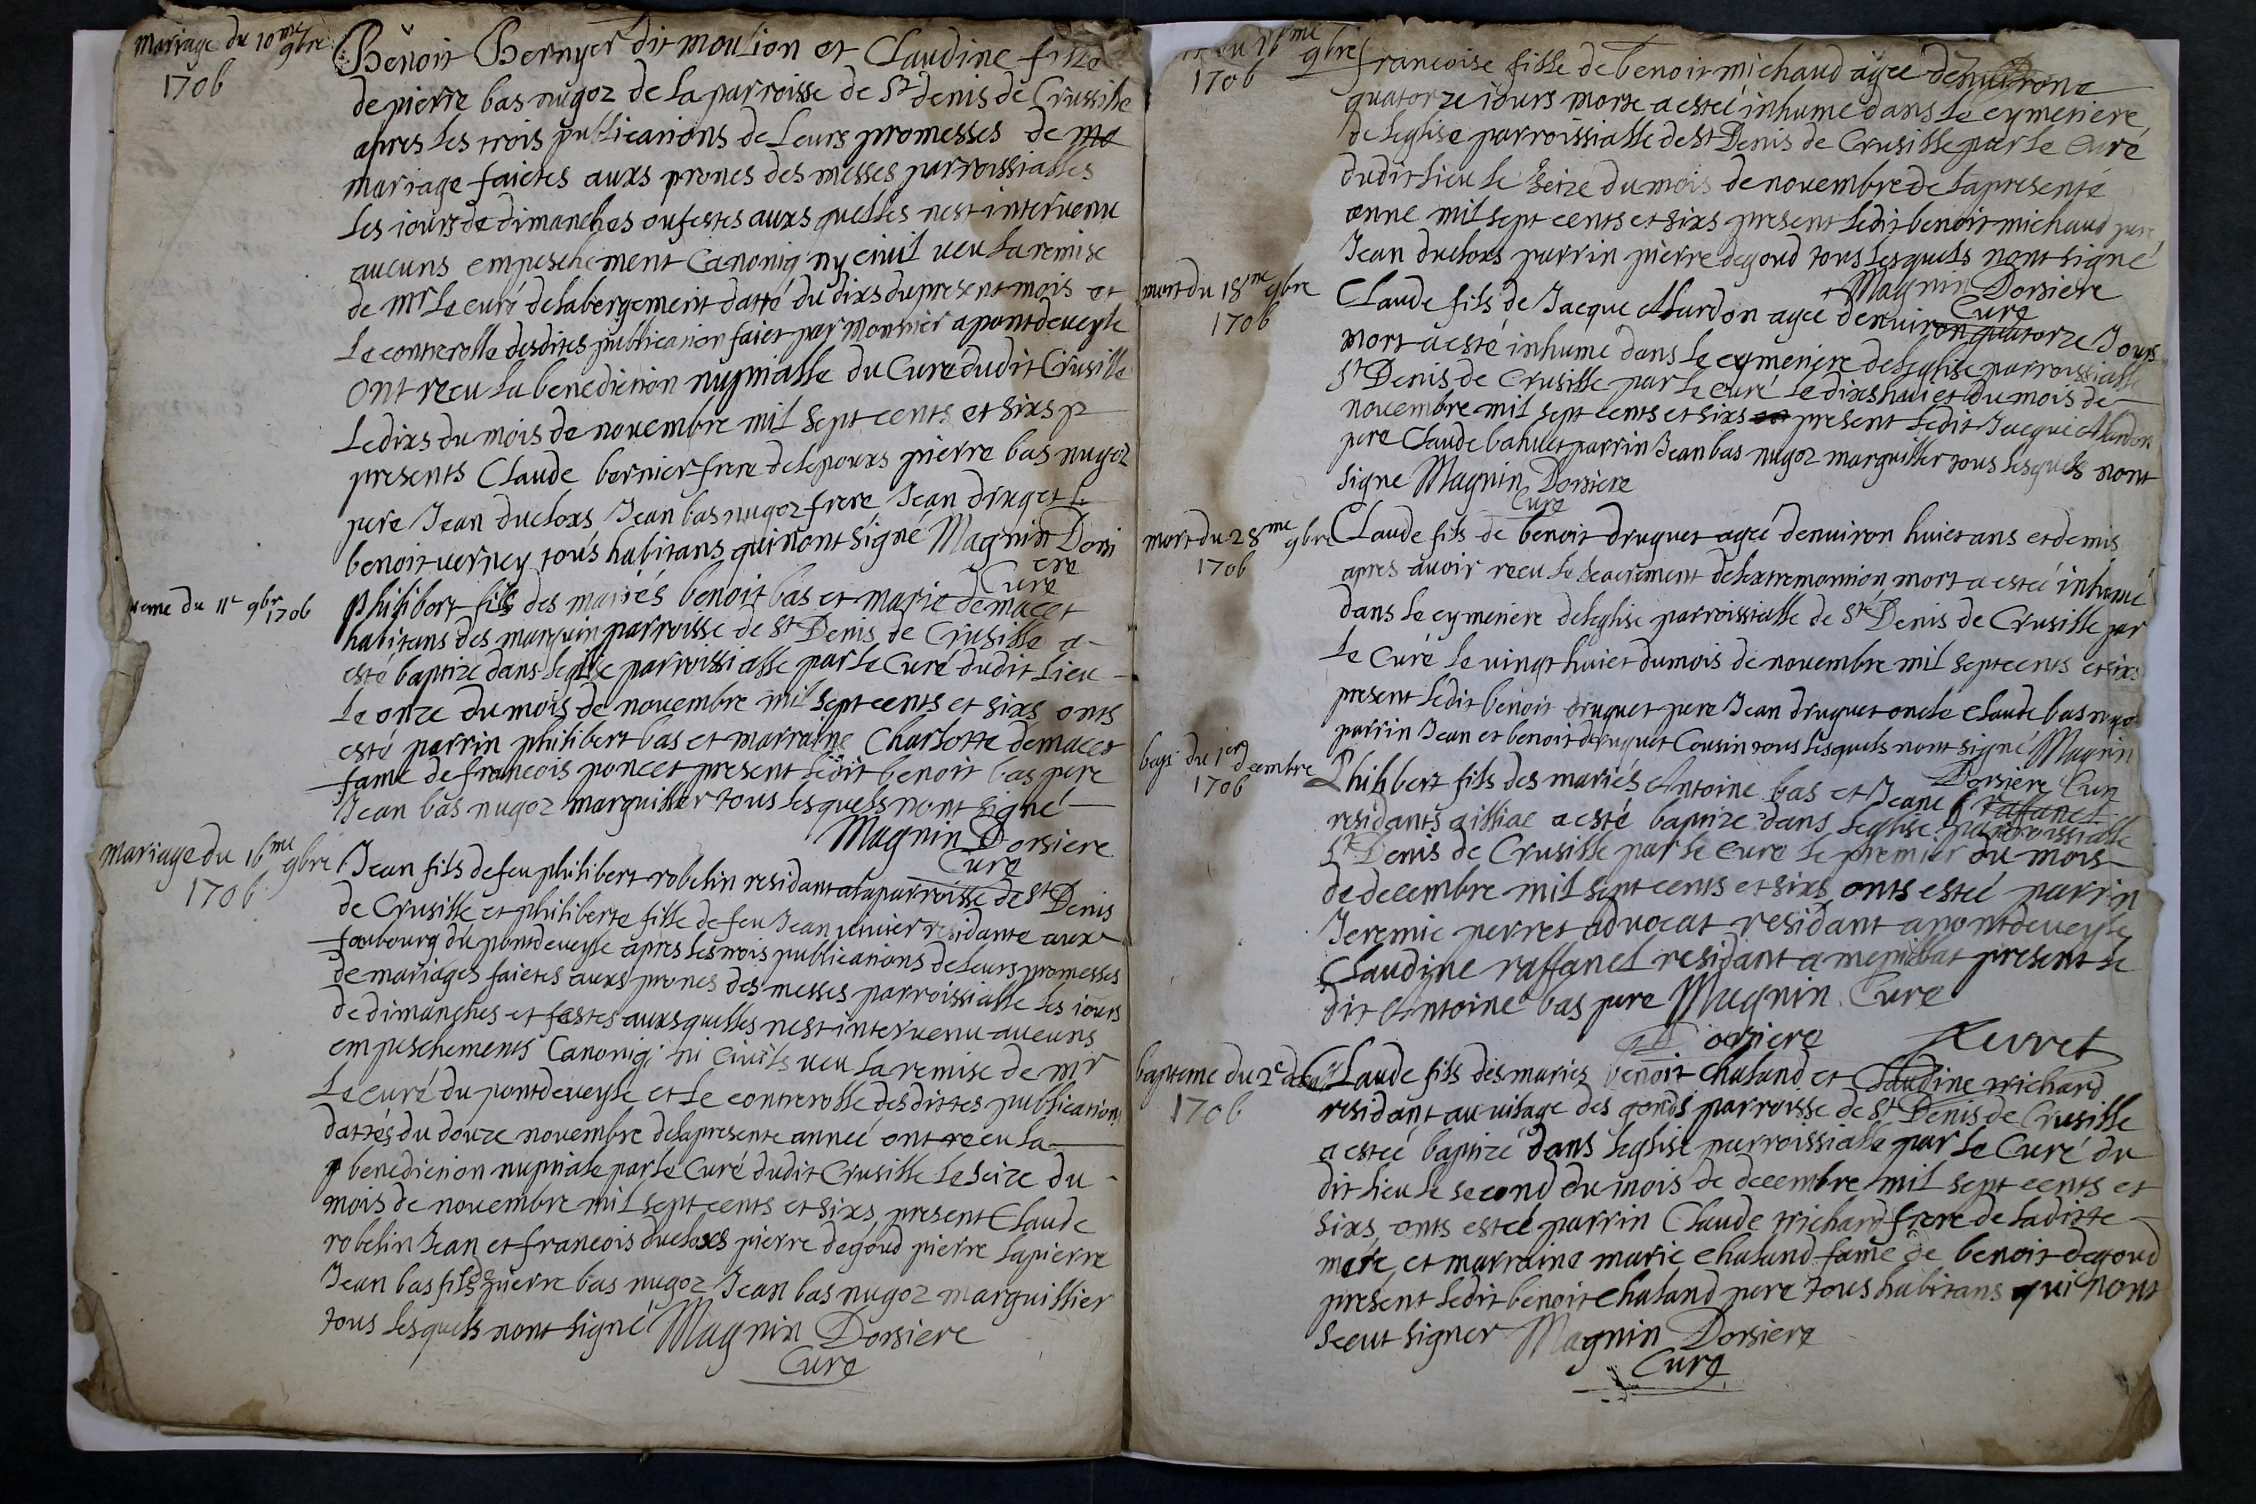 mariage du 10me 9bre
1706
Benoit Bernyer dit moulion et Claudine fille
de pierre bas nugoz de la parroisse de St denis de Crusille
apres les trois publications de leurs promesses de
mariage faictes auxs prones des messes parroissialles
les iours de dimanches ou festes auxs quelles nest intervenu
aucuns empeschement Canoniq ny ciuil veu la remise
de mr le curé de labergement datté du dixs du present mois et
le controlle desdites publication faict par monnier a pont deveyle
ont receu la benediction nuptialle du Curé dudit Crusille
le dixs du mois de novembre mil sept cents et sixs p
presents Claude bernier frere de lepouxs pierre bas nugoz
pere Jean ducloxs Jean bas nugoz frere Jean
benoit verney tous habitans qui nont signé Magnin Dorsi
ere
Curé
eme du 11e 9bre
1706
philibert fils des mariés benoit bas et marie demacet
habitans des manguin parroisse de St Denis de Crusille a
esté baptize dans leglise parroissialle par le Curé dudit lieu
le onze du mois de novembre mil sept cents et sixs onts
esté parrin philibert bas et marraine Charlotte demacet
fame de francois poncet present ledit benoit bas pere
Jean bas nugoz marguillier tous lesquels nont signé
Magnin Dorsiere
Curé
mariage du 16me 9bre
1706
Jean fils de feu philibert robelin residant a la parroisse de St Denis
de Crusille et philiberte fille de feu Jean residante aux
foubourg du pontdeveyle apres les trois publications de leurs promesses
de mariages faictes auxs prones des messes parroissialle les iours
de dimanches et festes auxs quelles nest intervenu aucuns
empeschements Canoniq ni Civils veu la remise de mr
le curé du pontdeveyle et le controlle desdittes publications
dattés du douze novembre de la presente anneé ont receu la
benediction nuptiale par le Curé dudit Crusille le seize du
mois de novembre mil sept cents et sixs present Claude
robelin Jean et francois ducloxs pierre degoud pierre lapierre
Jean bas fils de pierre bas nugoz Jean bas nugoz marguillier
tous lesquels nont signé Magnin Dorsiere
Curé
du 16me 9bre
1706
francoise fille de benoit michaud agée denviron
quatorze iours morte a esteé inhume dans le cymetiere
de leglise parroissialle de St Denis de Crusille par le Curé
dudit lieu le seize du mois de novembre de la presente
anne mil sept cents et sixs present ledit benoit michaud pere
Jean ducloxs parrin pierre degoud tous lesquels nont signé
Magnin Dorsiere
Curé
mort du 18me 9bre
1706
Claude fils de Jacque Alardon agee denviron quatorze Jours
mort a esté inhumé dans le cymetiere de leglise parroissialle
St Denis de Crusille par le curé le dixs huict du mois de
novembre mil sept cents et sixs present ledit Jacque Alardon
pere Claude bahuet parrin Jean bas nugoz marguillier tous lesquels nont
signe Magnin Dorsiere
Curé
mort du 28me 9bre
1706
Claude fils de benoit druguet ageé denviron huict ans et demis
apres avoir receu le sacrement de lextremontion mort a esteé inhumé
dans le cymetiere de leglise parroissialle de St Denis de Crusille par
le Curé le vingt huict du mois de novembre mil sept cents et sixs
present ledit benoit druguet pere Jean druguet oncle Claude bas nugo
parrin Jean et benoit druguet Cousin tous lesquels nont signé Magnin
Dorsiere Cur
bapt du 1er decembre
1706
Philibert fils des mariés Antoine bas et Jeane raffanel
residants a illiac a esté baptize dans leglise parroissialle
St Denis de Crusille par le Curé le premier du mois
de decembre mil sept cents et sixs onts esteé parrin
Jeremie perret advocat residant a pontdeveyle
Claudine raffanel residant a mepillat present le
dit Antoine bas pere Magnin Curé
Dorsiere Perret
bapteme du 2e
1706
Claude fils des mariez benoit chaland et Claudine trichard
residant au vilage des gonds parroisse de St Denis de Crusille
a esteé baptizé dans leglise parroissialle par le Curé du
dit lieu le second du mois de decembre mil sept cents et
sixs onts esteé parrin Claude trichard frere de laditte
mere et marraine marie chaland fame de benoit degoud
present ledit benoit chaland pere tous habitans qui nont
sceut signer Magnin Dorsiere
Curé